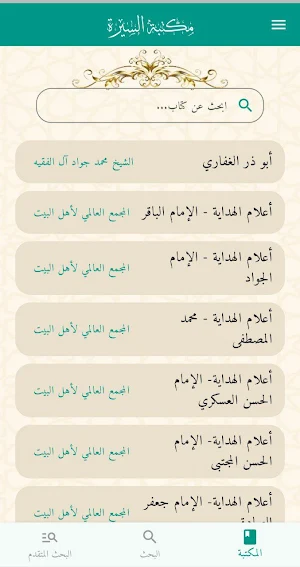 مكتبة السيرة
ابحث عن كتاب...
أبو ذر الغفاري
الشيخ محمد جواد آل الفقيه
أعلام الهداية - الإمام الباقر
المجمع العالمي لأهل البيت
أعلام الهداية - الإمام
الجواد
المجمع العالمي لأهل البيت
أعلام الهداية - محمد
المصطفى
المجمع العالمي لأهل البيت
أعلام الهداية- الإمام
الحسن العسكري
المجمع العالمي لأهل البيت
أعلام الهداية- الإمام
الحسن المجتبى
المجمع العالمي لأهل البيت
أعلام الهداية- الإمام جعفر
المجمع العالمي لأهل البيت
المكتبة
البحث
البحث المتقدم